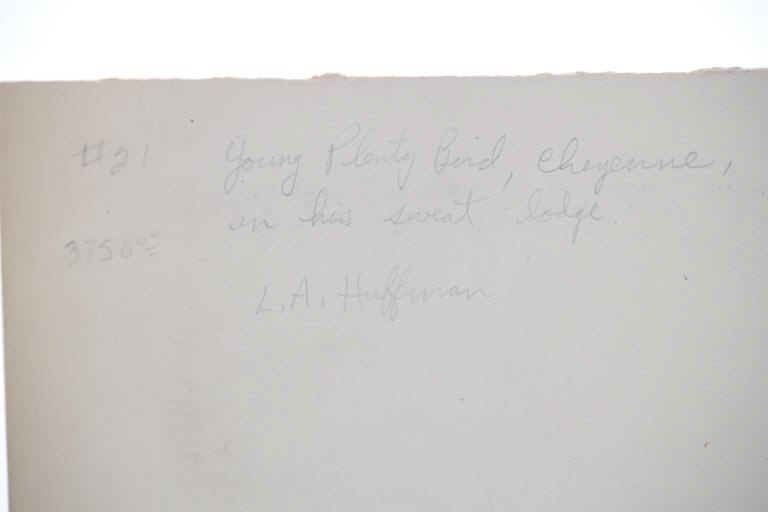 #21 Young Plenty Bird, Cheyenne,
in his sweat lodge.
L.A. Huffman